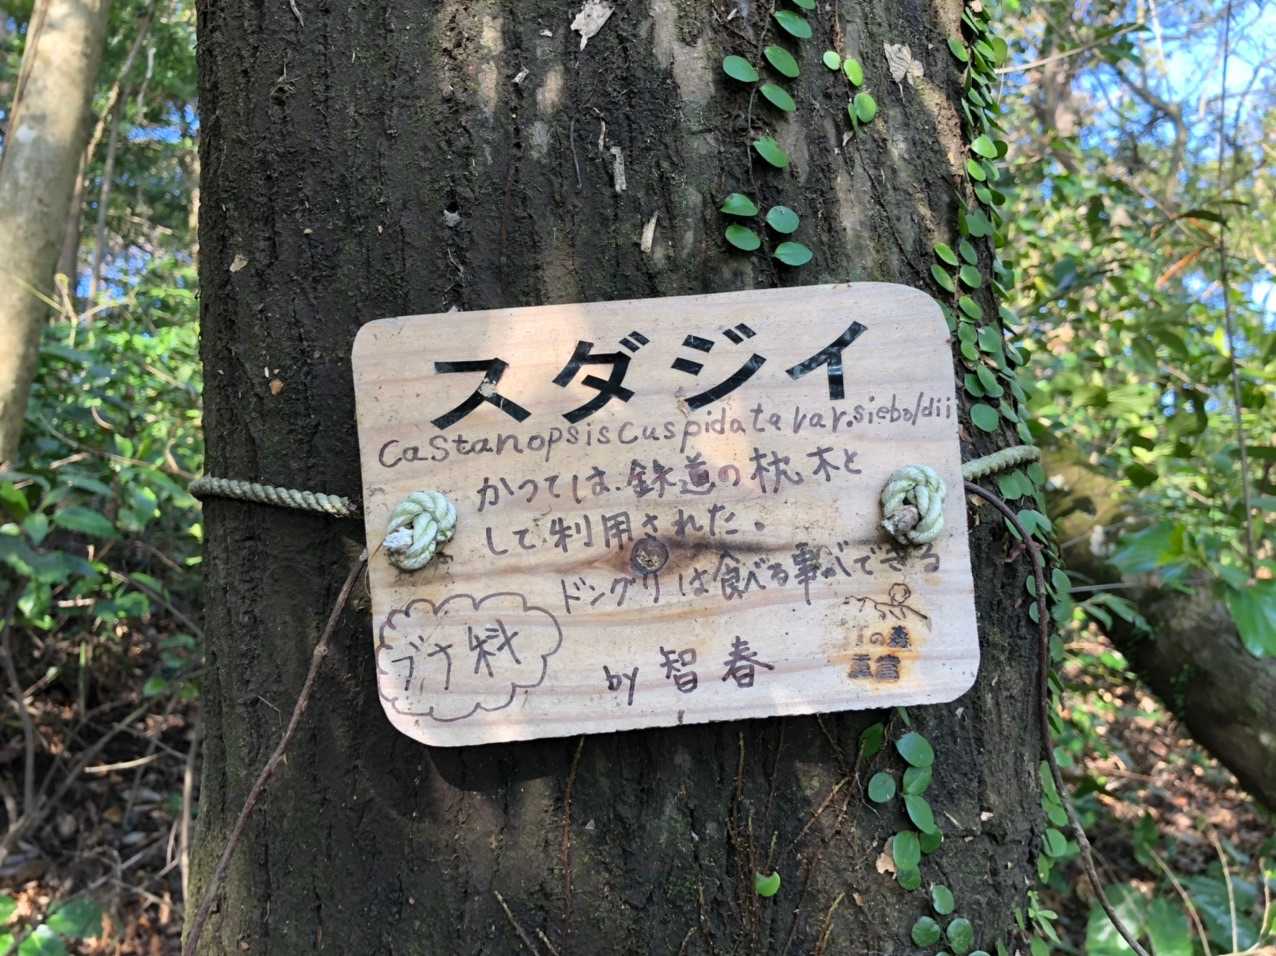 スダジイ
Castanopsis cuspidata var. sieboldii
かつては、鉄道の枕木と
して利用された。
ドングリは食べる事ができる
ブナ科
by 智春
の森